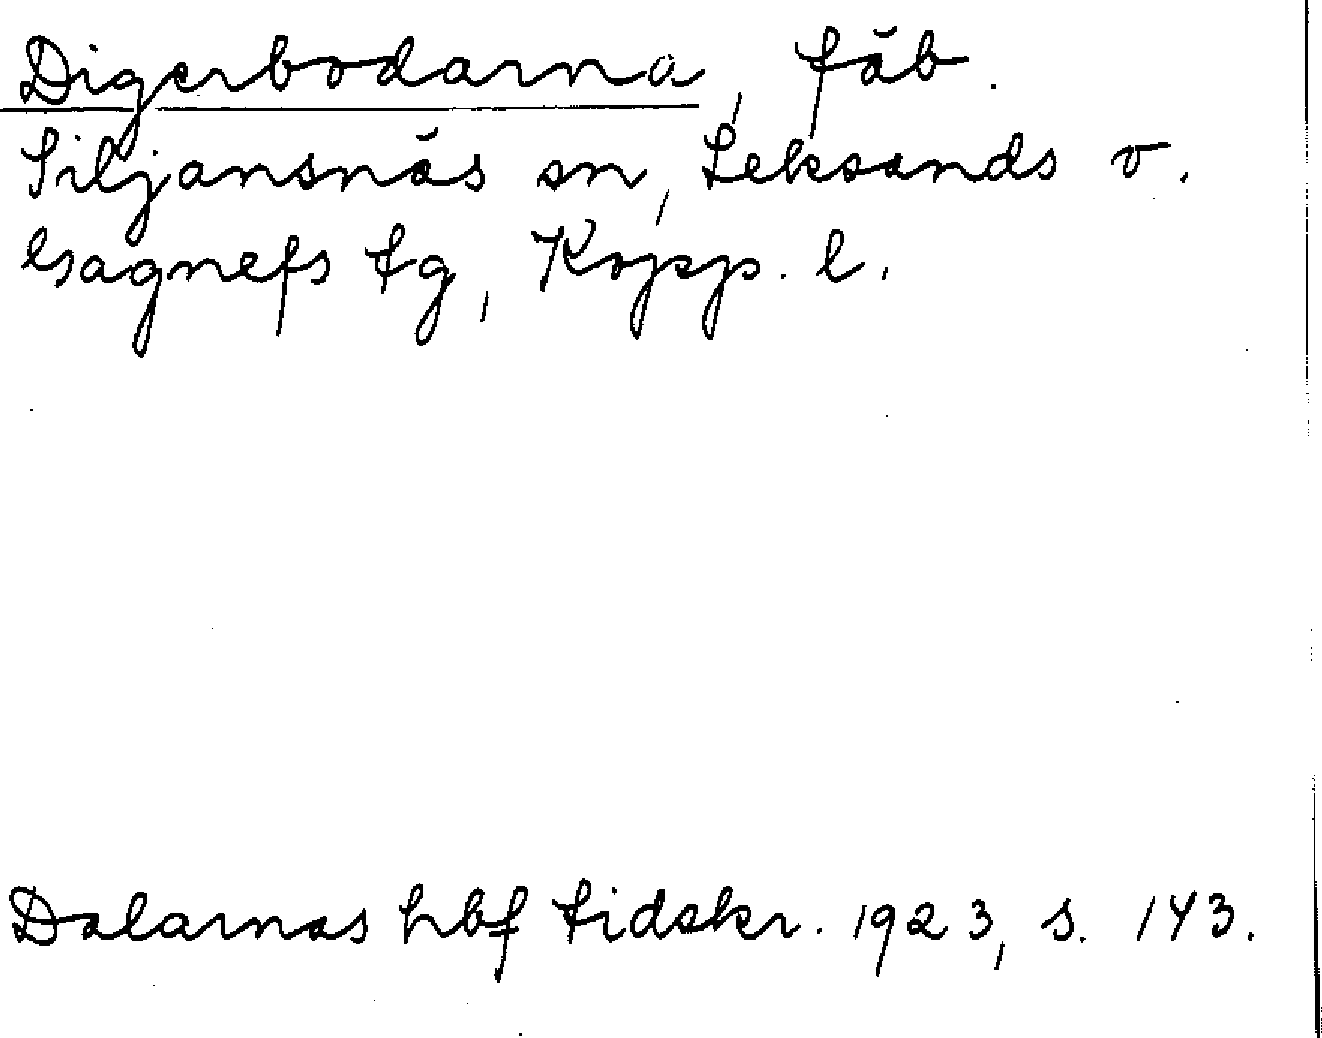 Digerbodarna, fäb.
Siljansnäs sn, Leksands o.
Gagnefs tg, Kopp. l.
Dalarnas hbf tidskr. 1923, s. 143.